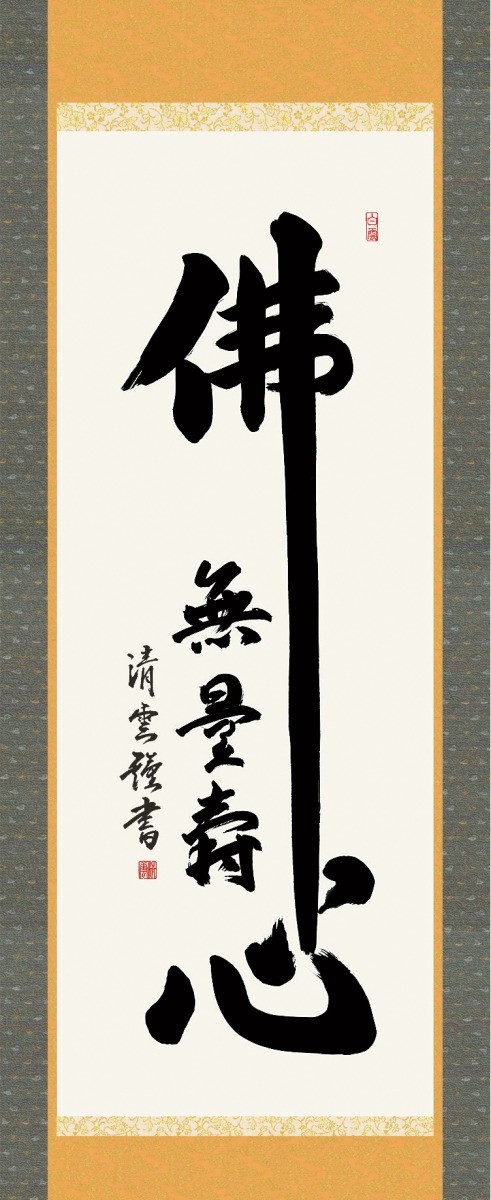 佛心
無量壽
清雲謹書